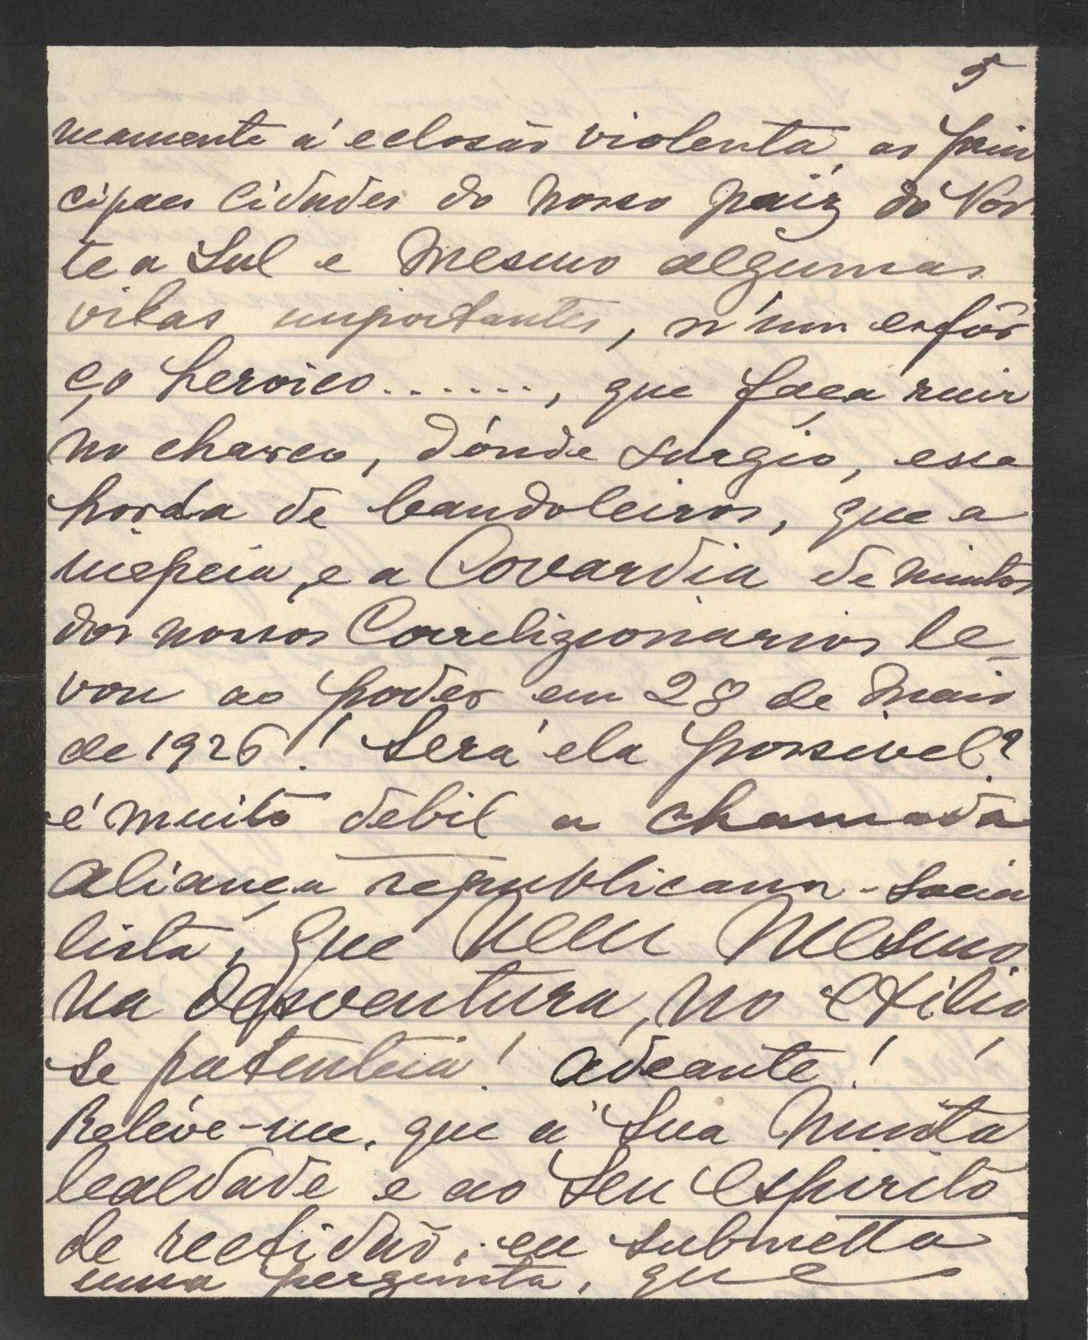 5
neamente á eclosão violenta, as prin
cipaes cidades do nosso paíz do Nor
te a Sul e mesmo algumas
vilas importantes, n'um esfôr
ço heroico......, que faça ruir
no charco, dónde surgio, essa
horda de bandoleiros, que a
inépcia, e a Covardia de muitos
dos nossos Correligionarios le-
vou ao poder em 28 de Maio
de 1926! Será ela possivel?
é muito debil a chamada
aliança republicana-Socia
lista, que nem mesmo
na desventura, no exilio
se patenteia! adeante!
Reléve-me, que á Sua muita
lealdade e ao Seu espirito
de rectidão, eu submetta
uma pergunta, que